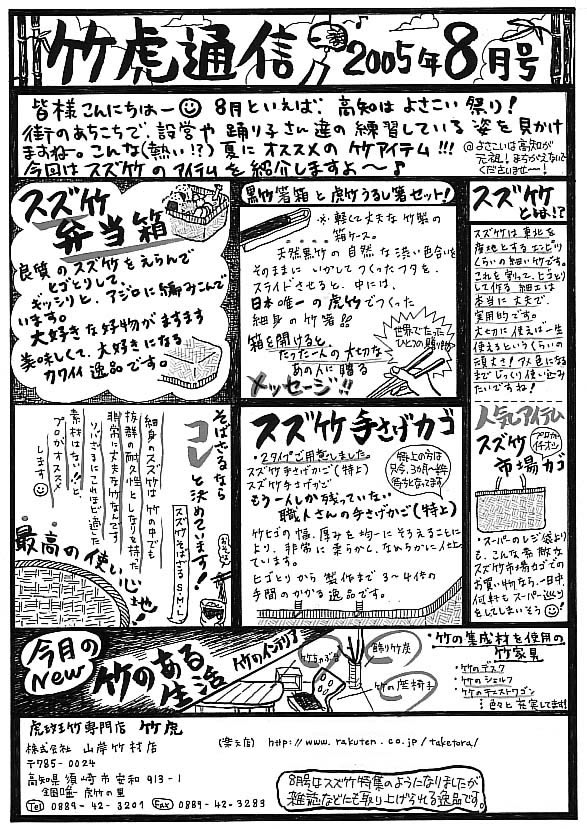 竹虎通信 2005年8月号
皆様こんにちはー 8月といえば、高知はよさこい祭り!
街のあちこちで、設営や踊り子さん達の練習している姿を見かけ
ますねー。こんな(熱い!?)夏にオススメの竹アイテム!!!
今回はスズ竹のアイテムを紹介しますよ〜♪
@よさこいは高知が
元祖!まちがえないで
くださいませー!
スズ竹
弁当箱
良質のスズ竹をえらんで
ヒゴとりして、
ギッシリと、アジロに編みこんで
います。
大好きな好物がますます
美味しくて、大好きになる
カワイイ逸品です。
黒竹箸箱と虎竹うるし箸セット!
※軽くて丈夫な竹製の
箱ケース。
天然黒竹の自然な渋い色合いを
そのままにいかしてつくったフタを、
スライドさせると、中には、
日本唯一の虎竹でつくった
細身の竹箸!!
箱を開けると、
たった一人の大切な
あの人に贈る
メッセージ!!
世界でたった
ひとつの贈り物
スズ竹
とは!?
スズ竹は東北を
産地とするエンピツ
くらいの細い竹です。
これを割って、ヒゴとり
して作る細工は
本当に丈夫で、
実用的です。
大切に使えば一生
使えるというくらいの
頑丈さ!アメ色になる
までじっくり使い込み
たいですね!
そばざるなら
コレ
と決めています!
スズ竹そばざる
細身のスズ竹は竹の中でも
抜群の耐久性としなりを持った
非常に丈夫な竹なんです
ソバざるにこれほど適した
素材はない!!と、
プロがオススメ
します
最高の使い心地!
スズ竹手さげカゴ
・2タイプご用意しました。
スズ竹手さげかご(特上)
スズ竹手さげかご
特上の方は
只今、3ヶ月〜半年
待ちとなってます
もう一人しか残っていない
職人さんの手さげかご(特上)
竹ヒゴの幅、厚みを均一にそろえることに
より、非常に柔らかく、なめらかに仕上
ています。
ヒゴとりから製作まで3〜4倍の
手間のかかる逸品です。
人気アイテム
スズ竹
市場カゴ
プロが
イチオシ
・スーパーのレジ袋より
も、こんな素敵な
スズ竹市場カゴでの
お買い物なら、一日中、
何軒もスーパー巡りを
してしまいそう
今月の
New
竹のある
生活
竹のインテリア
竹ちゃぶ台
飾り竹炭
竹の座椅子
・竹の集成材を使用の
竹家具
・竹のデスク
・竹のシェルフ
・竹のチェストワゴン
色々と充実してます!
虎斑竹専門店 竹虎
株式会社 山岸竹材店
〒785-0024
高知県須崎市安和913-1
全国唯一虎竹の里
Tel 0889-42-3201 Fax 0889-42-3283
(楽天店) http://www.rakuten.co.jp/taketora/
8月号はスズ竹特集のようになりましたが
雑誌などにも取り上げられる逸品です。